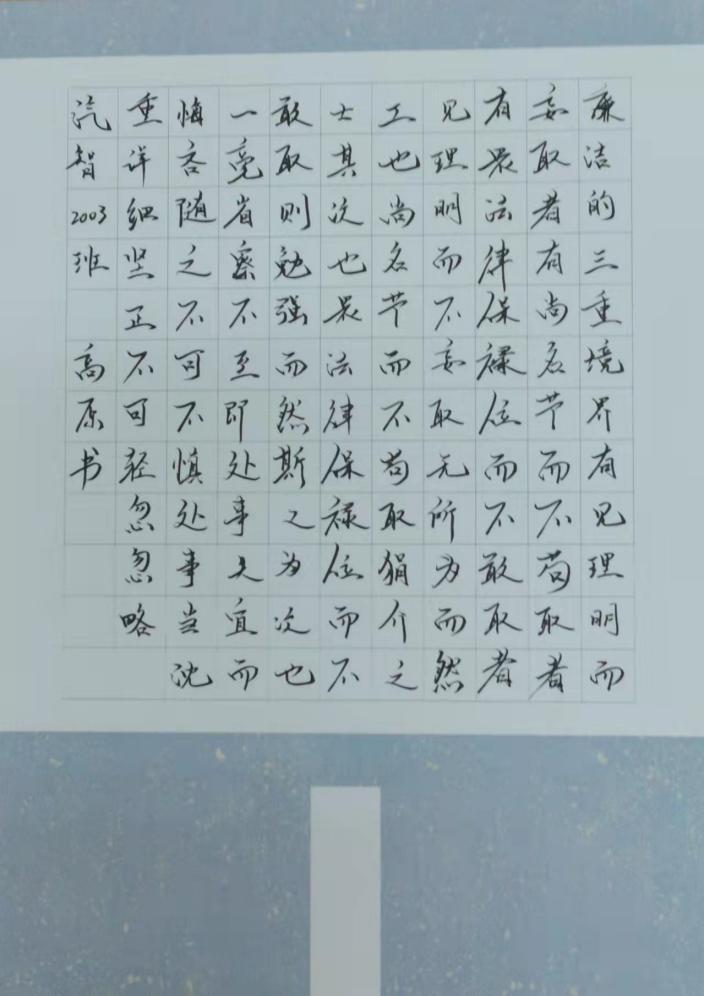 廉洁的三重境界有见理明而
妄取者有尚名节而不苟取者
有畏法律保禄位而不敢取者
见理明而不妄取无所为而然
上也尚名节而不苟取狷介之
士其次也畏法律保禄位而不
敢取则勉强而然斯又为次也
一毫省察不至即处事失宜而
悔吝随之不可不慎处事当沈
重详细坚正不可轻忽忽略
汽智2003班 高原书